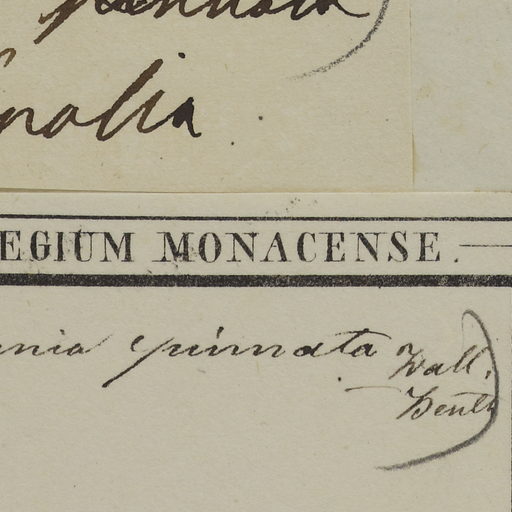 pinnata
nolia
EGIUM MONACENSE.
nia pinnata Wall.
Benth